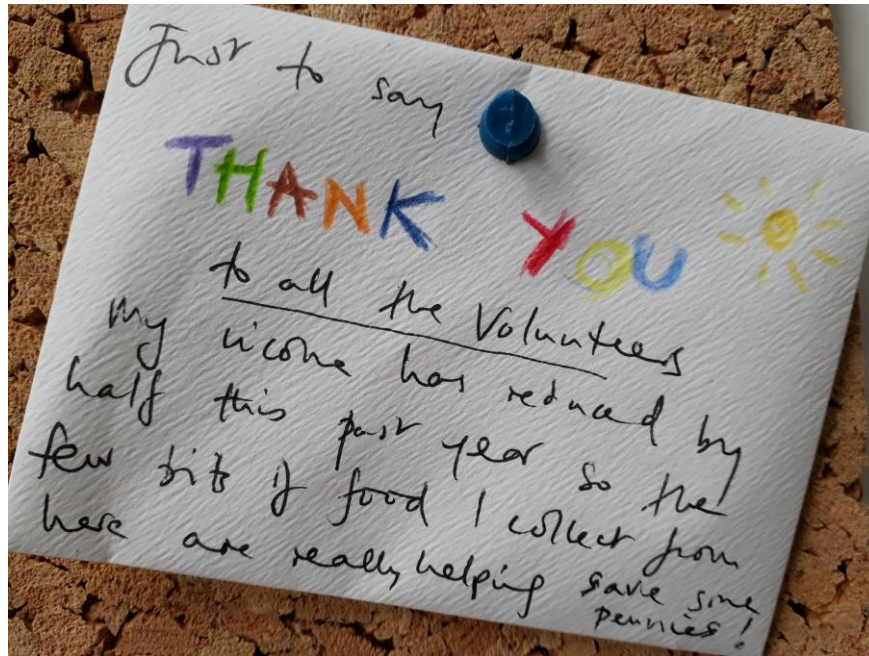 Just to say
THANK YOU
to all the Volunteers
My income has reduced by
half this past year so the
few bits of food I collect from
here are really helping save some
pennies!